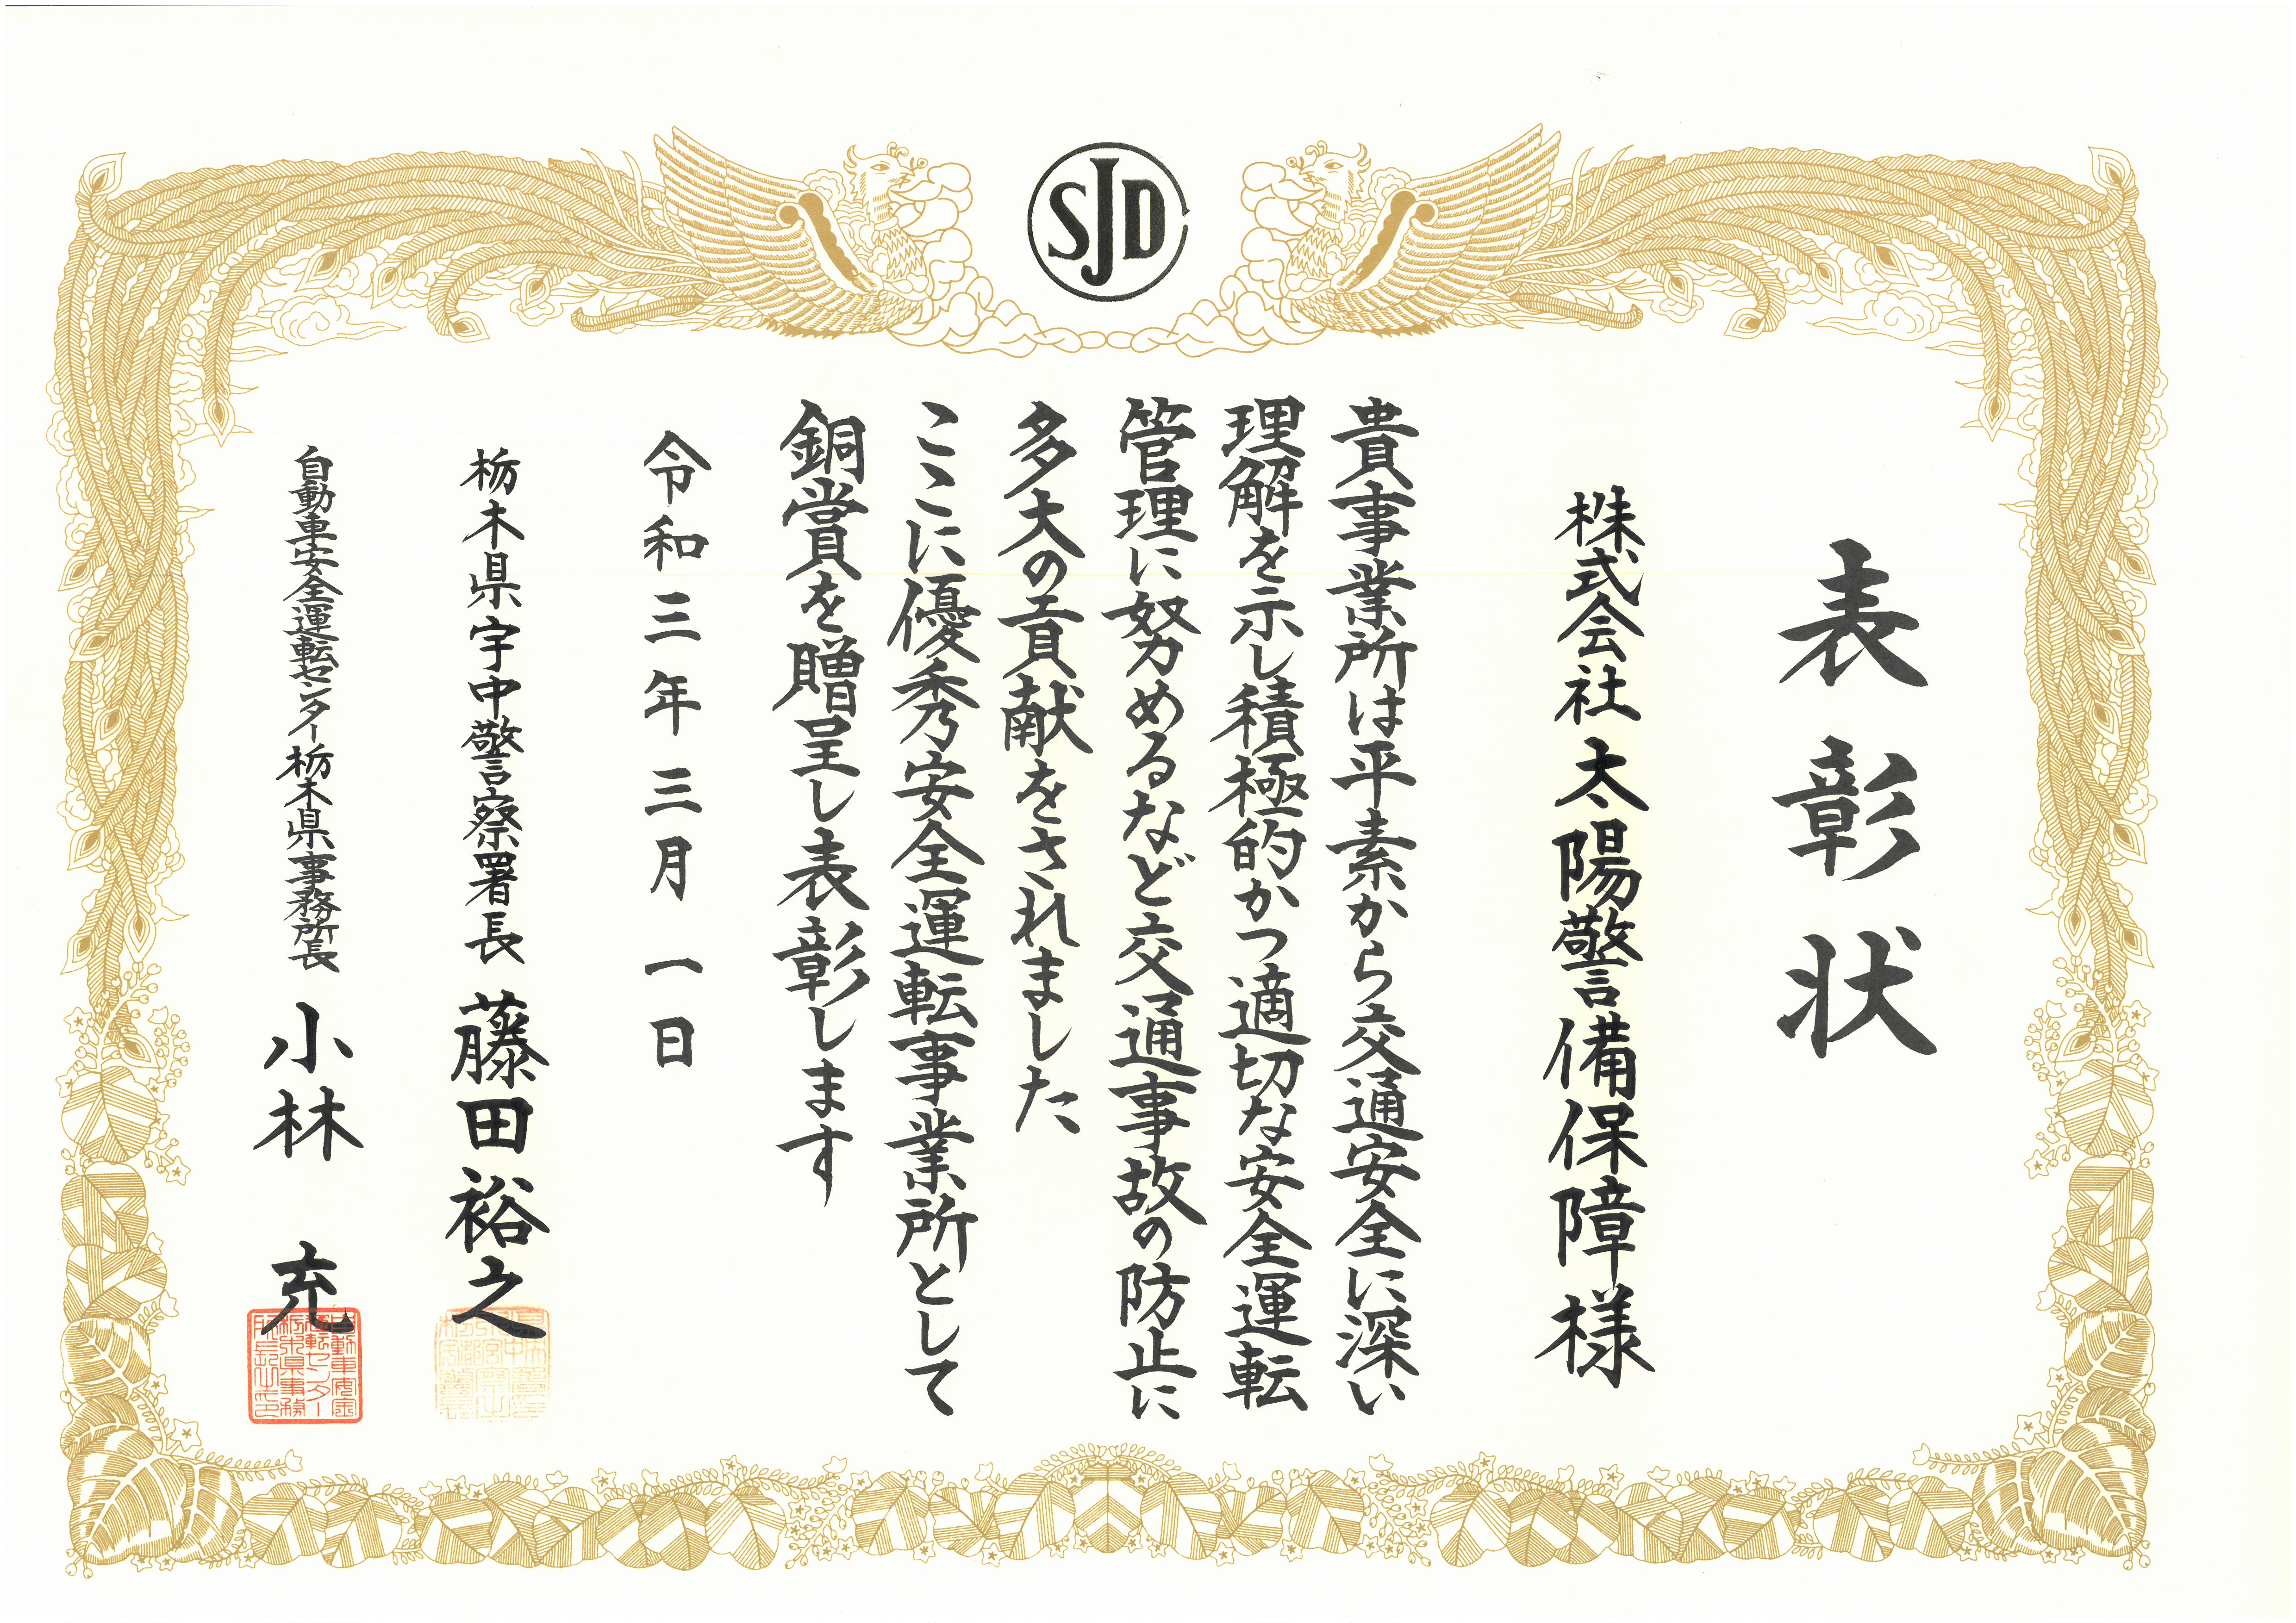 SJD
表彰状
株式会社 太陽警備保障様
貴事業所は平素から交通安全に深い
理解を示し積極的かつ適切な安全運転
管理に努めるなど交通事故の防止に
多大の貢献をされました
ここに優秀安全運転事業所として
銅賞を贈呈し表彰します
令和三年三月一日
栃木県宇中警察署長 藤田裕之
自動車安全運転センター栃木県事務所長 小林 充
自動車安全
運転センター
栃木県事務
所長之印